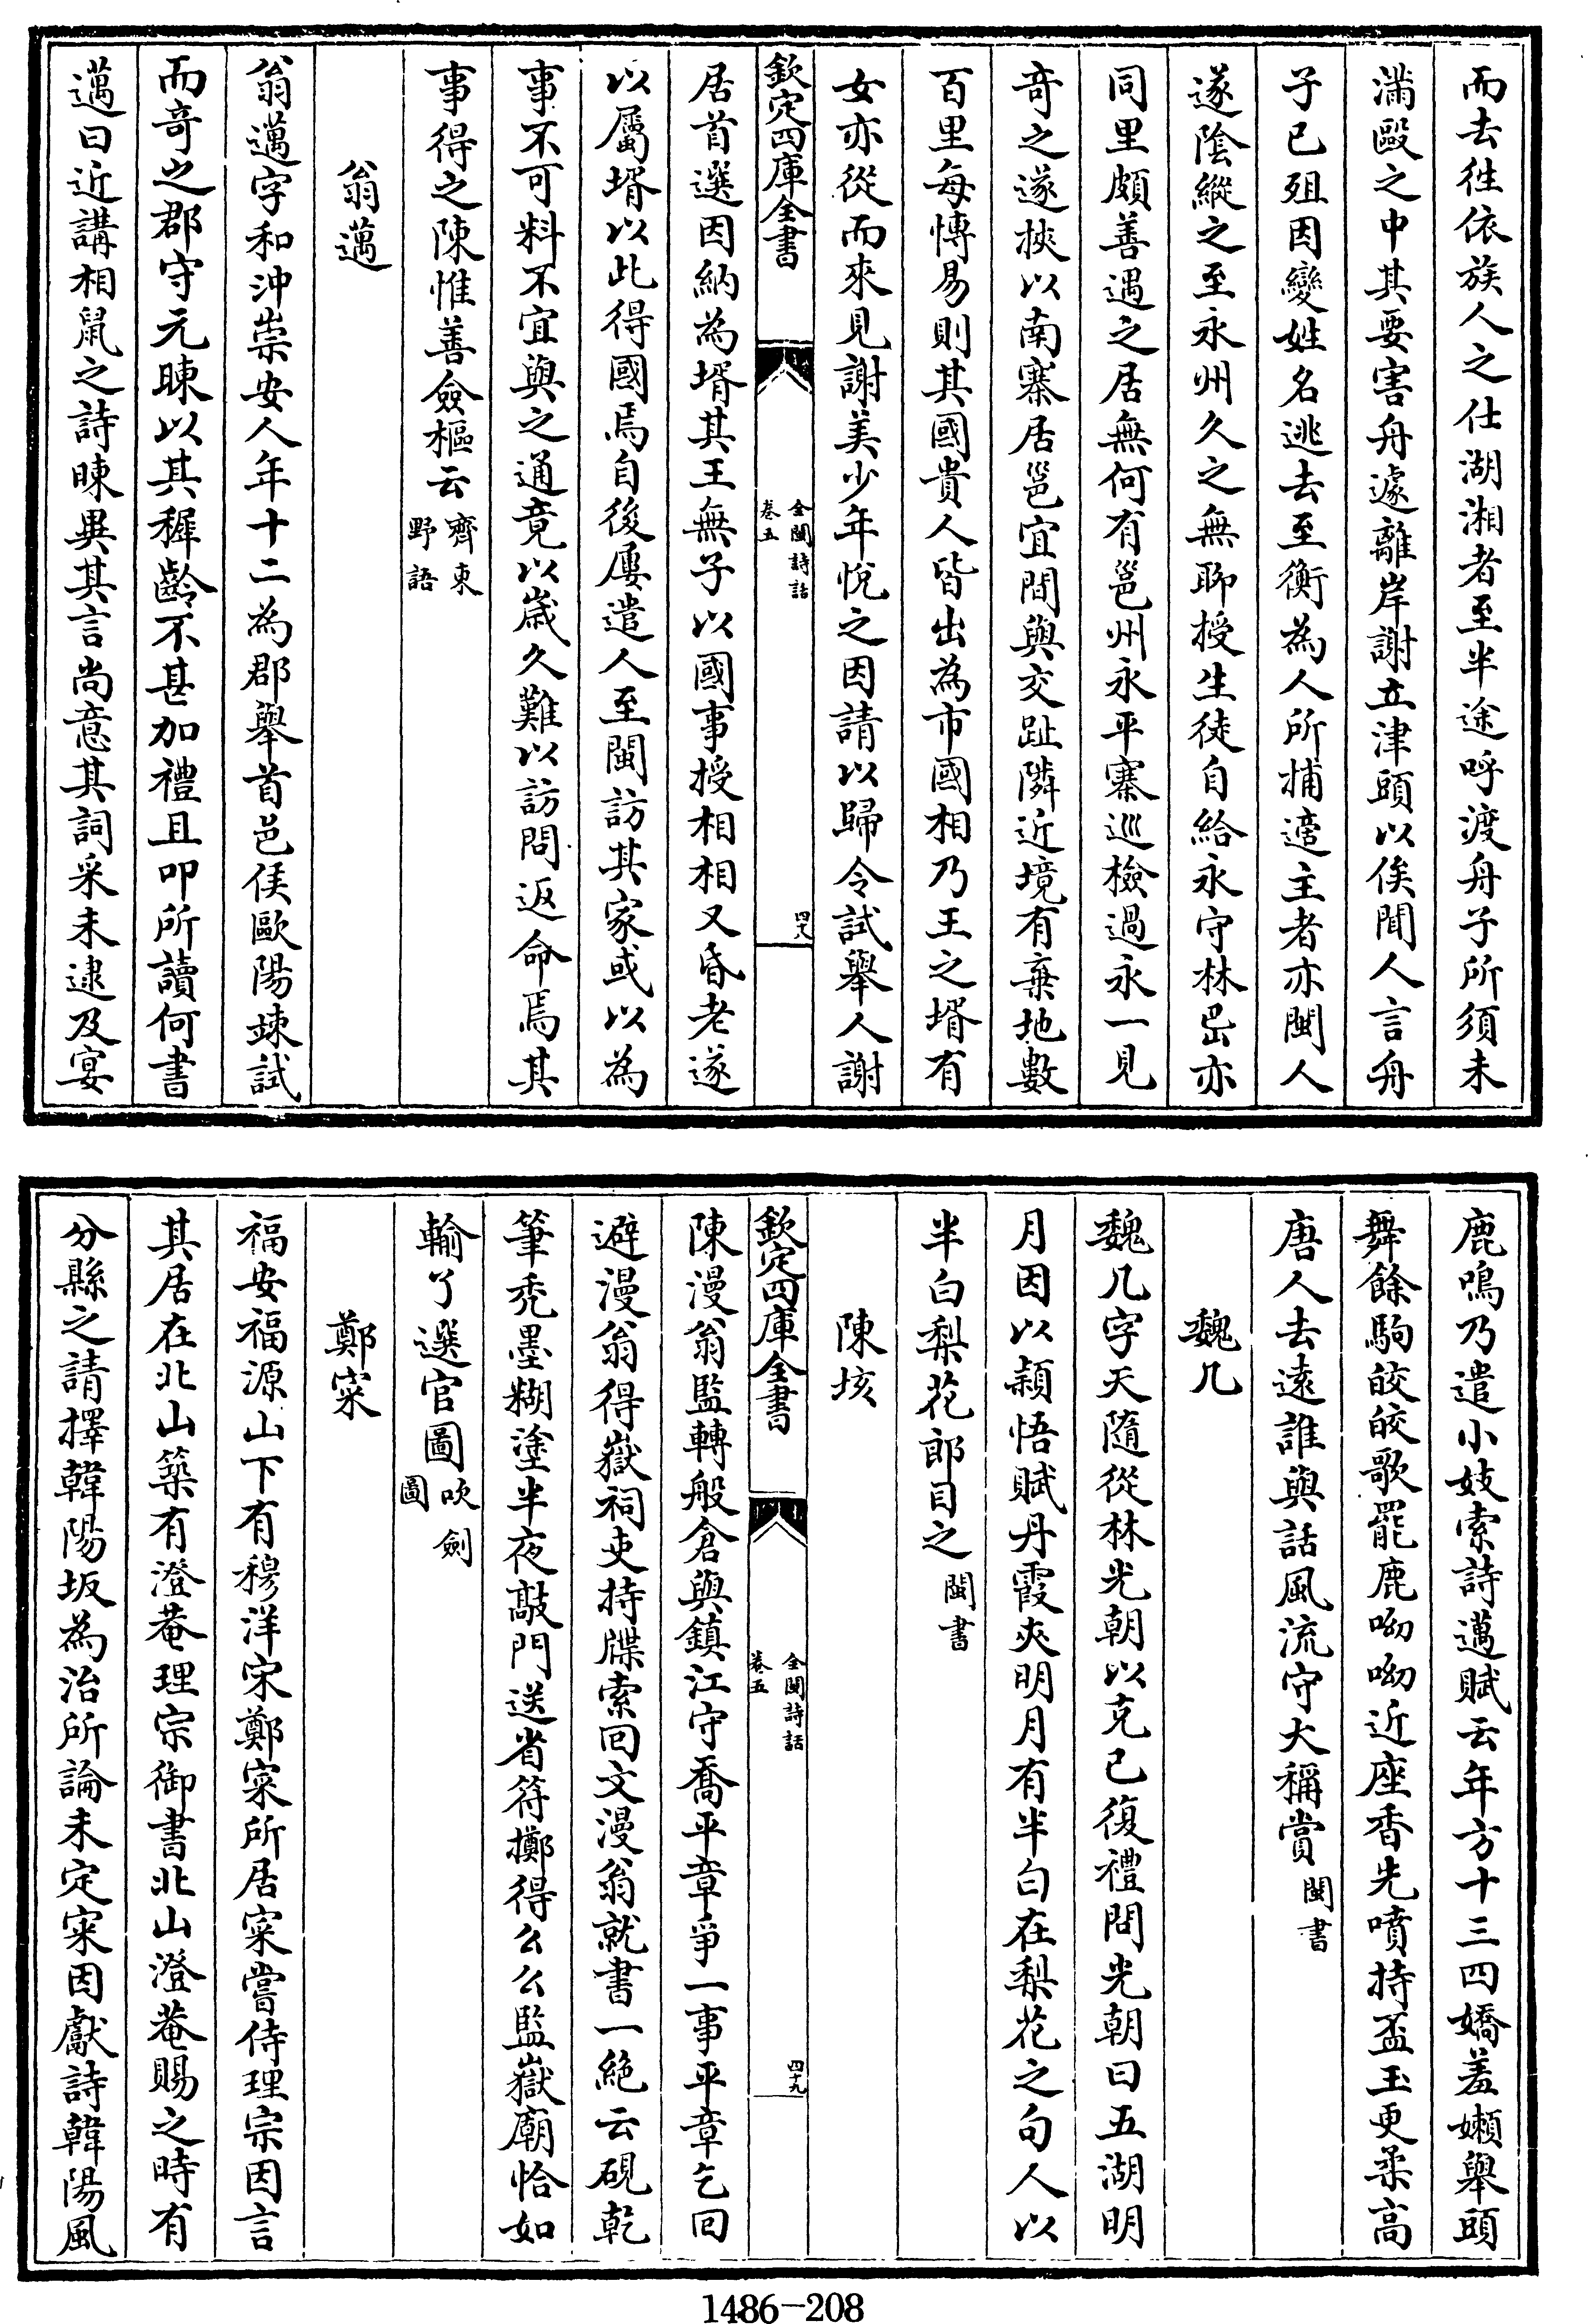 而去徃依族人之仕湖湘者至半途呼渡舟子所須未
滿毆之中其要害舟遽離岸謝立津頭以俟聞人言舟
子已殂因變姓名逃去至衡為人所捕適主者亦閩人
遂陰縱之至永州久之無聊授生徒自給永守林岊亦
同里頗善遇之居無何有邕州永平寨巡檢過永一見
竒之遂挾以南寨居邕宜間與交趾隣近境有棄地數
百里每博易則其國貴人皆出為市國相乃王之壻有
女亦從而來見謝美少年悅之因請以歸令試舉人謝
欽定四庫全書
全閩詩話
卷五
四十八
居首選因納為壻其王無子以國事授相相又昏老遂
以屬壻以此得國焉自後屢遣人至閩訪其家或以為
事不可料不宜與之通竟以嵗久難以訪問返命焉其
事得之陳惟善僉樞云齊東
野語
翁邁
翁邁字和沖崇安人年十二為郡舉首邑侯歐陽竦試
而竒之郡守元暕以其穉齡不甚加禮且叩所讀何書
邁曰近講相鼠之詩暕異其言尚意其詞采未逮及宴
鹿鳴乃遣小妓索詩邁賦云年方十三四嬌羞嬾舉頭
舞餘駒皎皎歌罷鹿呦呦近座香先噴持盃玉更柔高
唐人去遠誰與話風流守大稱賞閩書
魏几
魏几字天隨從林光朝以克己復禮問光朝曰五湖明
月因以穎悟賦丹霞夾明月有半白在梨花之句人以
半白梨花郎目之閩書
陳垓
欽定四庫全書
全閩詩話
卷五
四十九
陳漫翁監轉般倉與鎮江守喬平章爭一事平章乞回
避漫翁得嶽祠吏持牒索回文漫翁就書一絶云硯乾
筆禿墨糊塗半夜敲門送省符擲得么么監嶽廟恰如
輸了選官圖吹劍
圖
鄭寀
福安福源山下有穆洋宋鄭寀所居寀嘗侍理宗因言
其居在北山築有澄菴理宗御書北山澄菴賜之時有
分縣之請擇韓陽坂為治所論未定寀因獻詩韓陽風
1486-208